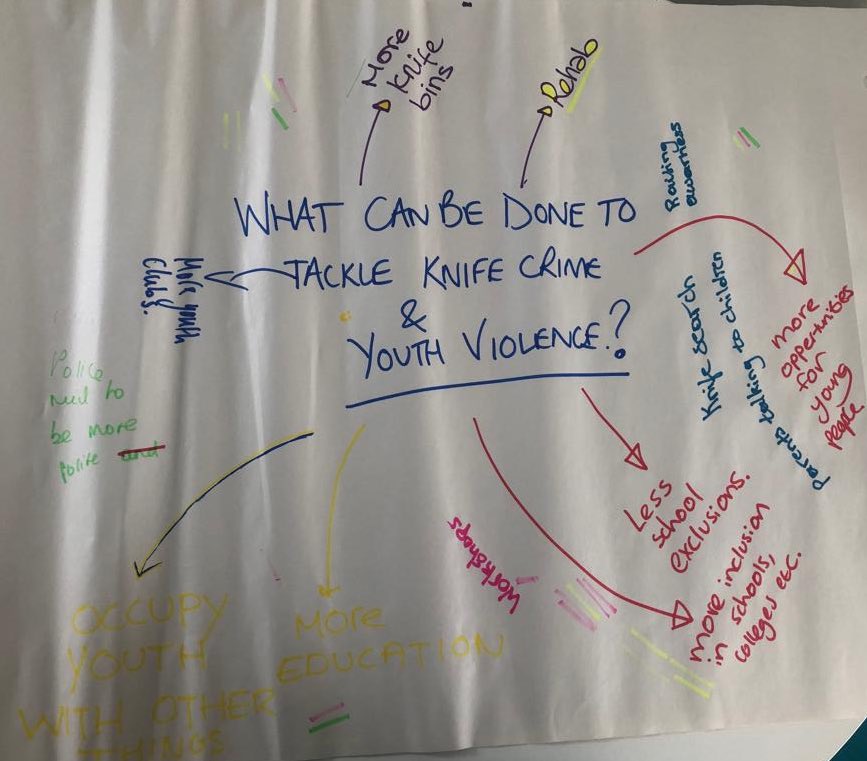 More
Knife
bins
Rehab
Raising
awareness
WHAT CAN BE DONE TO
TACKLE KNIFE CRIME
&
YOUTH VIOLENCE?
More youth
Clubs.
Knife search
Parents talking to children
more
opportunities
for
young
people
Police
need to
be more
polite and
Less
school
exclusions.
more inclusion
in schools,
colleges etc.
Workshops
OCCUPY
YOUTH
WITH OTHER
THINGS
MORE
EDUCATION